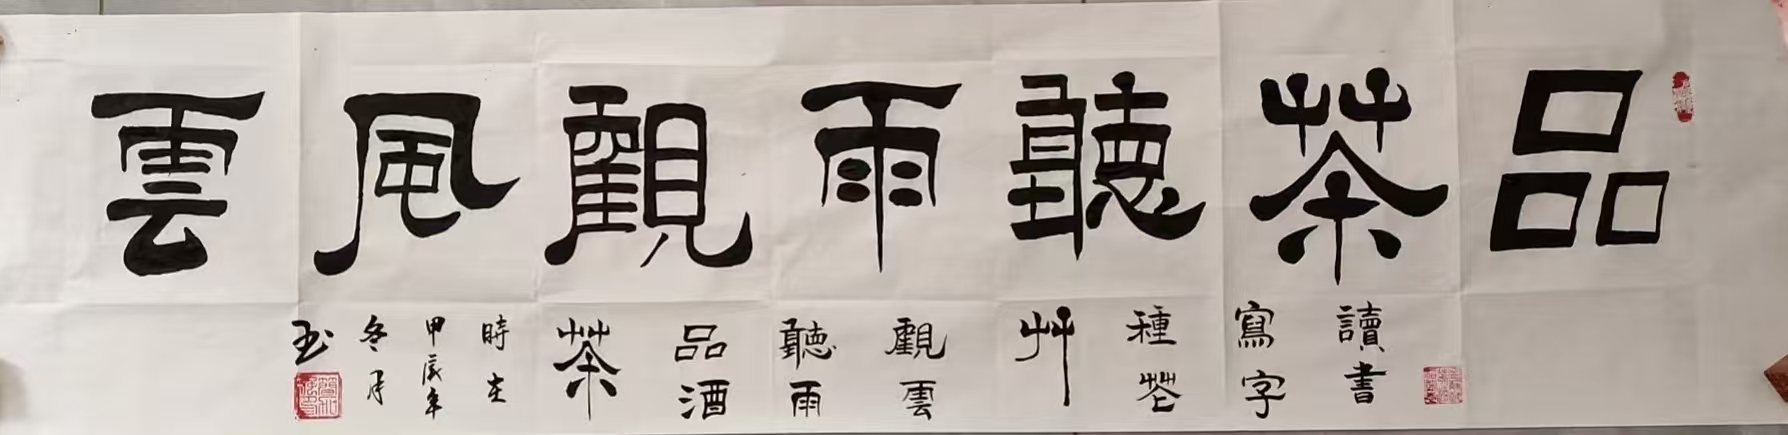 品茶聽雨觀風雲
讀書
寫字
種花
艸
觀雲
聽雨
品酒
茶
時在
甲辰年
冬月